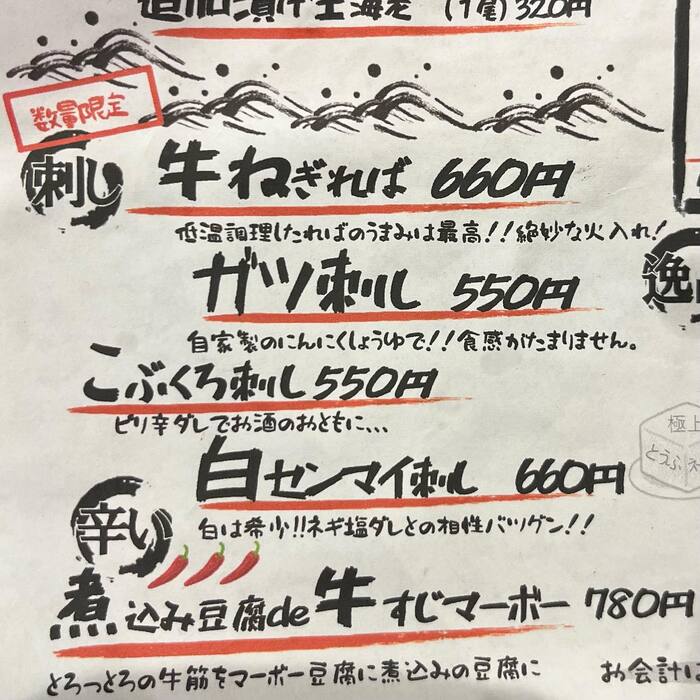 追加漬け生海老 (1尾)320円
数量限定
刺し
牛ねぎればー 660円
低温調理したればのうまみは最高!!絶妙な火入れ!
ガツ刺し 550円
自家製のにんにくしょうゆで!!食感がたまりません。
こぶくろ刺し 550円
ピリ辛ダレでお酒のおともに、、、
白センマイ刺し 660円
白は希少!!ネギ塩ダレとの相性バツグン!!
辛い
煮込み豆腐de牛すじマーボー 780円
とろっとろの牛筋をマーボー豆腐に煮込みの豆腐に
お会計に
逸
極上
とうふ